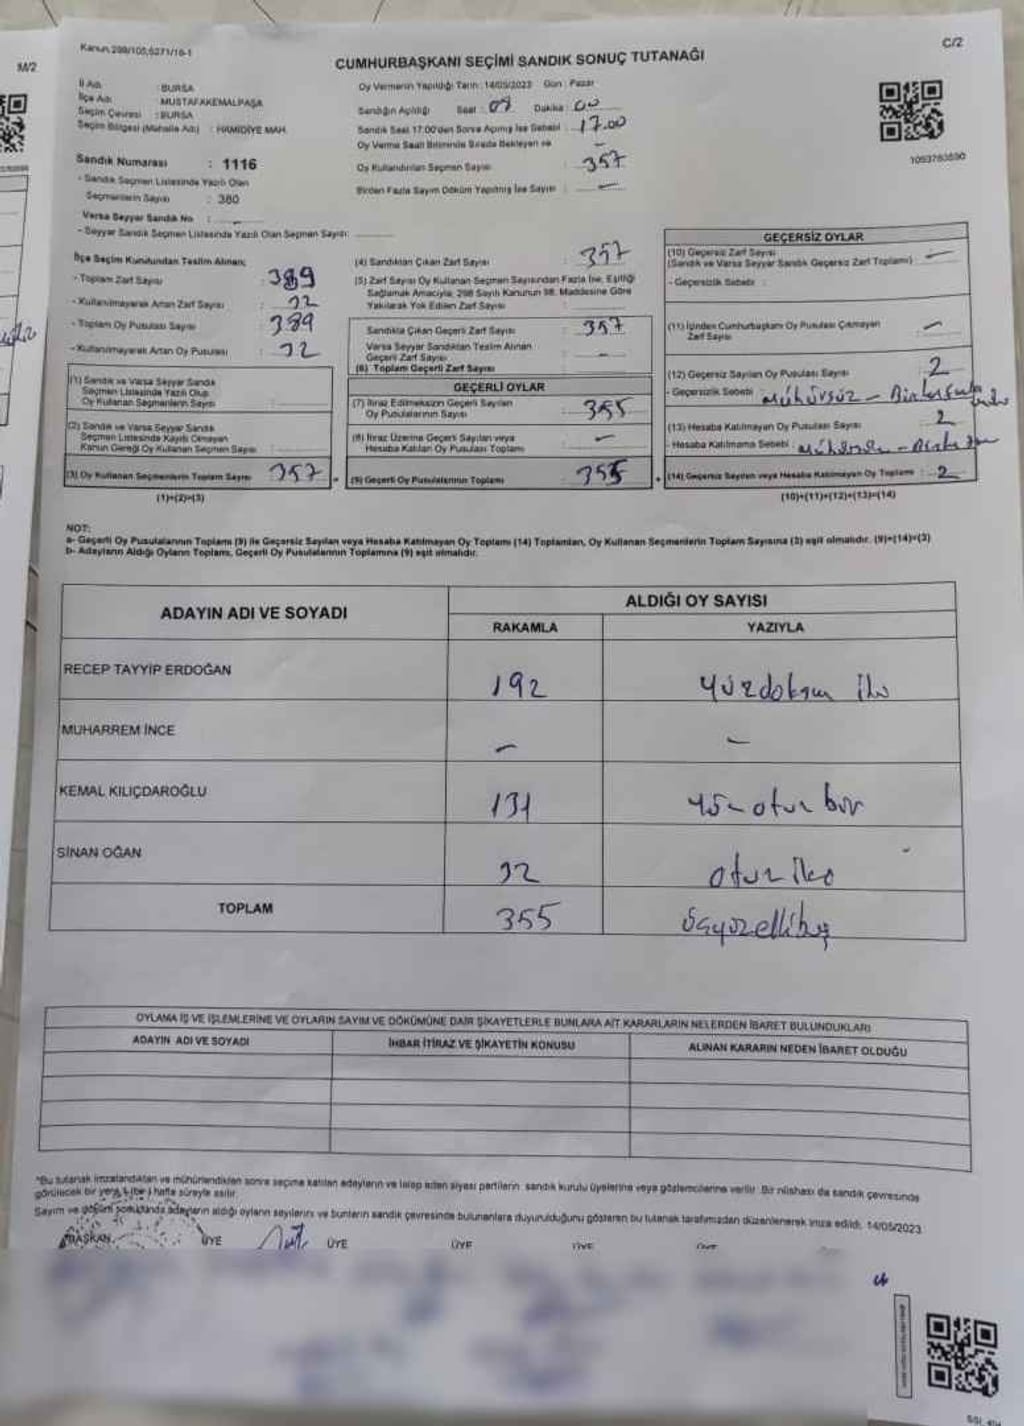 M/2
Kanun,298/105,6271/16-1
C/2
CUMHURBAŞKANI SEÇİMİ SANDIK SONUÇ TUTANAĞI
İl Adı : BURSA
İlçe Adı : MUSTAFAKEMALPAŞA
Seçim Çevresi : BURSA
Seçim Bölgesi (Mahalle Adı) : HAMİDİYE MAH.
Sandık Numarası : 1116
- Sandık Seçmen Listesinde Yazılı Olan
Seçmenlerin Sayısı : 380
Varsa Seyyar Sandık No :
- Seyyar Sandık Seçmen Listesinde Yazılı Olan Seçmen Sayısı:
Oy Vermenin Yapıldığı Tarih: 14/05/2023 Gün : Pazar
Sandığın Açıldığı Saat : 07 Dakika : 00
Sandık Saat 17.00'den Sonra Açılmış İse Sebebi : 17.00
Oy Verme Saati Bitiminde Sırada Bekleyen ve
Oy Kullandırılan Seçmen Sayısı : 357
Birden Fazla Sayım Döküm Yapılmış İse Sayısı : -
1093763590
İlçe Seçim Kurulundan Teslim Alınan;
- Toplam Zarf Sayısı : 389
- Kullanılmayarak Artan Zarf Sayısı : 32
- Toplam Oy Pusulası Sayısı : 389
- Kullanılmayarak Artan Oy Pusulası : 32
(1) Sandık ve Varsa Seyyar Sandık
Seçmen Listesinde Yazılı Olup
Oy Kullanan Seçmenlerin Sayısı :
(2) Sandık ve Varsa Seyyar Sandık
Seçmen Listesinde Kayıtlı Olmayan
Kanun Gereği Oy Kullanan Seçmen Sayısı :
(3) Oy Kullanan Seçmenlerin Toplam Sayısı : 357
(1)+(2)=(3)
(4) Sandıktan Çıkan Zarf Sayısı : 357
(5) Zarf Sayısı Oy Kullanan Seçmen Sayısından Fazla İse, Eşitliği
Sağlamak Amacıyla, 298 Sayılı Kanunun 98. Maddesine Göre
Yakılarak Yok Edilen Zarf Sayısı :
Sandıkta Çıkan Geçerli Zarf Sayısı : 357
Varsa Seyyar Sandıktan Teslim Alınan
Geçerli Zarf Sayısı : -
(6) Toplam Geçerli Zarf Sayısı :
GEÇERLİ OYLAR
(7) İtiraz Edilmeksizin Geçerli Sayılan
Oy Pusulalarının Sayısı : 355
(8) İtiraz Üzerine Geçerli Sayılan veya
Hesaba Katılan Oy Pusulası Toplamı : -
(9) Geçerli Oy Pusulalarının Toplamı : 355
GEÇERSİZ OYLAR
(10) Geçersiz Zarf Sayısı
(Sandık ve Varsa Seyyar Sandık Geçersiz Zarf Toplamı) : -
- Geçersizlik Sebebi :
(11) İçinden Cumhurbaşkanı Oy Pusulası Çıkmayan
Zarf Sayısı : -
(12) Geçersiz Sayılan Oy Pusulası Sayısı : 2
- Geçersizlik Sebebi : mühürsüz -
(13) Hesaba Katılmayan Oy Pusulası Sayısı : 2
- Hesaba Katılmama Sebebi :
(14) Geçersiz Sayılan veya Hesaba Katılmayan Oy Toplamı : 2
(10)+(11)+(12)+(13)=(14)
NOT:
a- Geçerli Oy Pusulalarının Toplamı (9) ile Geçersiz Sayılan veya Hesaba Katılmayan Oy Toplamı (14) Toplamları, Oy Kullanan Seçmenlerin Toplam Sayısına (3) eşit olmalıdır. (9)+(14)=(3)
b- Adayların Aldığı Oyların Toplamı, Geçerli Oy Pusulalarının Toplamına (9) eşit olmalıdır.
ADAYIN ADI VE SOYADI
ALDIĞI OY SAYISI
RAKAMLA
YAZIYLA
RECEP TAYYİP ERDOĞAN 192 yüzdoksan iki
MUHARREM İNCE - -
KEMAL KILIÇDAROĞLU 131 yüz otuz bir
SİNAN OĞAN 32 otuz iki
TOPLAM 355 üçyüzellibeş
OYLAMA İŞ VE İŞLEMLERİNE VE OYLARIN SAYIM VE DÖKÜMÜNE DAİR ŞİKAYETLERLE BUNLARA AİT KARARLARIN NELERDEN İBARET BULUNDUKLARI
ADAYIN ADI VE SOYADI
İHBAR İTİRAZ VE ŞİKAYETİN KONUSU
ALINAN KARARIN NEDEN İBARET OLDUĞU
*Bu tutanak imzalandıktan ve mühürlendikten sonra seçime katılan adayların ve talep eden siyasi partilerin sandık kurulu üyelerine veya gözlemcilerine verilir. Bir nüshası da sandık çevresinde
görülecek bir yere 1 (bir) hafta süreyle asılır.
Sayım ve döküm sonucunda adayların aldığı oyların sayılarını ve bunların sandık çevresinde bulunanlara duyurulduğunu gösteren bu tutanak tarafımızdan düzenlenerek imza edildi. 14/05/2023
BAŞKAN ÜYE ÜYE ÜYE ÜYE ÜYE